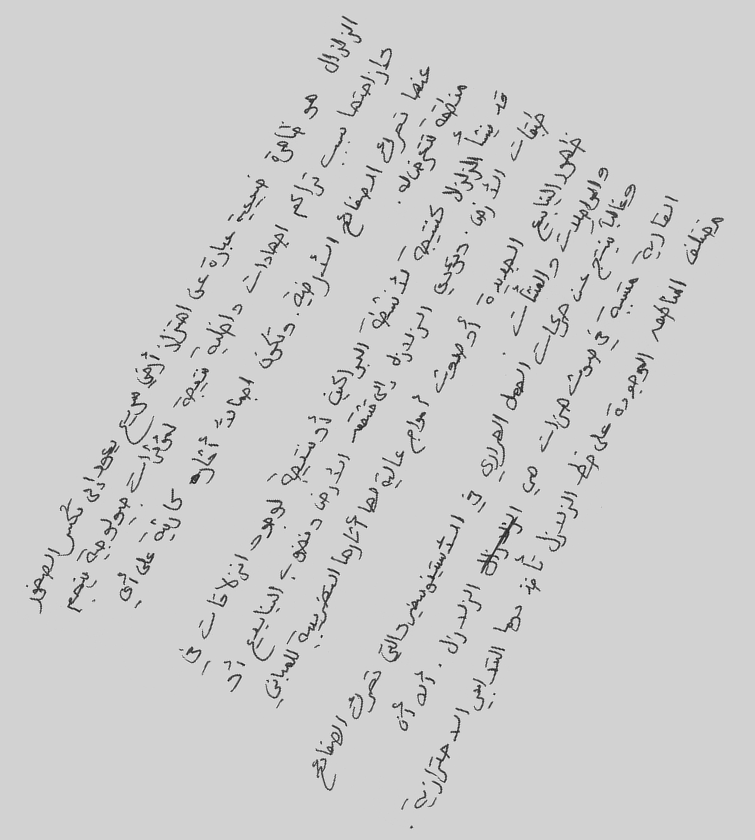 الزلزال هو ظاهرة طبيعية عبارة عن اهتزاز أرضي سريع يعود إلى تكسر الصخور
وازاحتها بسبب تراكم اجهادات داخلية نتيجة لمؤثرات جيولوجية ينجم
عنها تحرك الصفائح الأرضية. وتكون اجمالا آثاره كارثية على أي
منطقة تتعرض له.
قد ينشأ الزلزال كنتيجة لأنشطة البراكين أو نتيجة لوجود انزلاقات في
طبقات الأرض. وتؤدي الزلازل إلى تشقق الأرض ونضوب الينابيع أو
ظهور الينابيع الجديدة أو حدوث أمواج عالية بما آثارها التخريبية للمباني
والمواصلات والمنشآت.
وغالبا ينتج عن حركات الحمل الحراري في الأسثينوسفير والتي تحرك الصفائح
القارية متسببة في حدوث هزات هي الزلازل. أنه أن
مختلف المناطق الموجودة على خط الزلازل تأخذ دها التدابير الاحترازية.